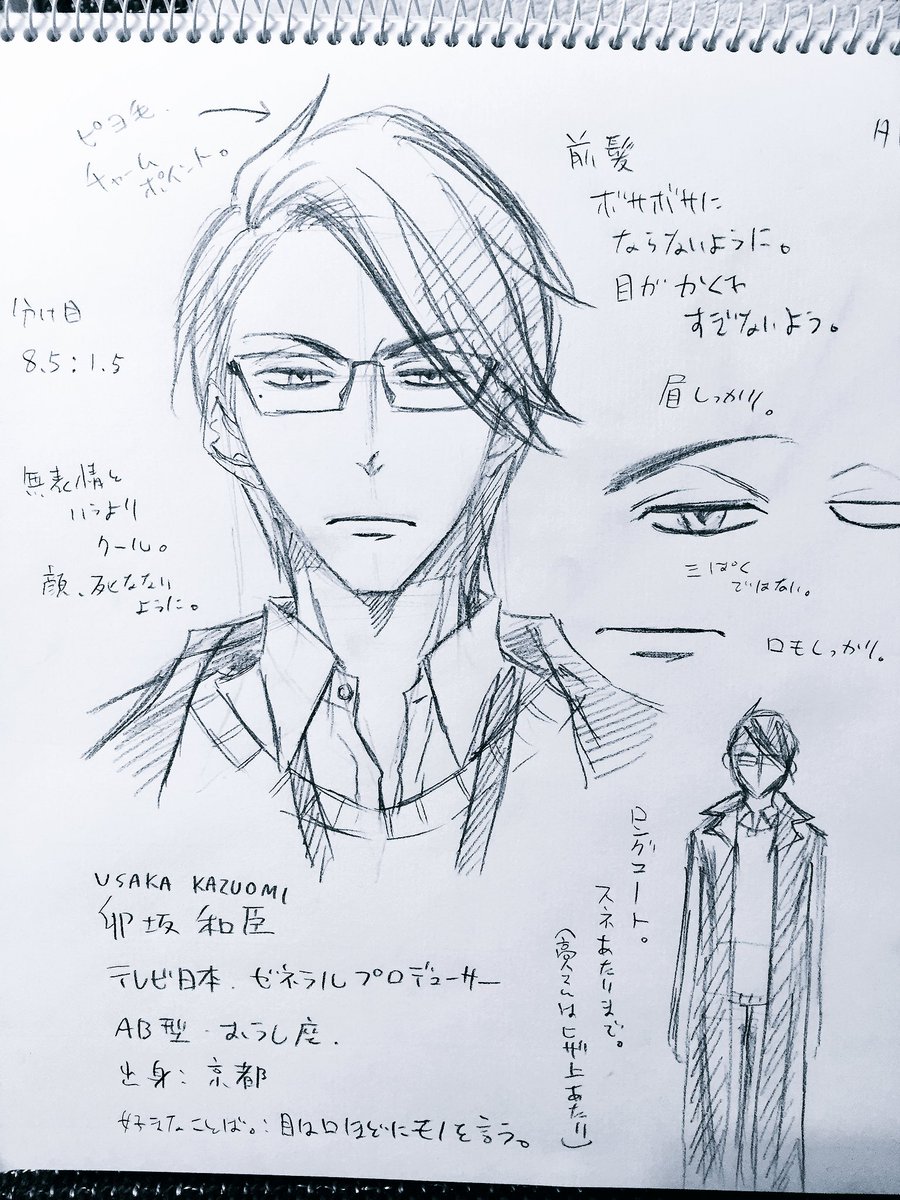 ピヨ毛.
チャーム
ポイント。
前髪
ボサボサに
ならないように。
目が かくれ
すぎないよう。
分け目
8.5:1.5
眉しっかり。
無表情と
いうより
クール。
顔、死なない
ように。
三ぱく
ではない。
口もしっかり。
ロングコート。
スネあたりまで。
はヒザ上あたり)
USAKA KAZUOMI
卯坂 和臣
テレビ日本. ゼネラルプロデューサー
AB型・おうし座.
出身:京都
好きなことば。:目は口ほどにモノを言う。